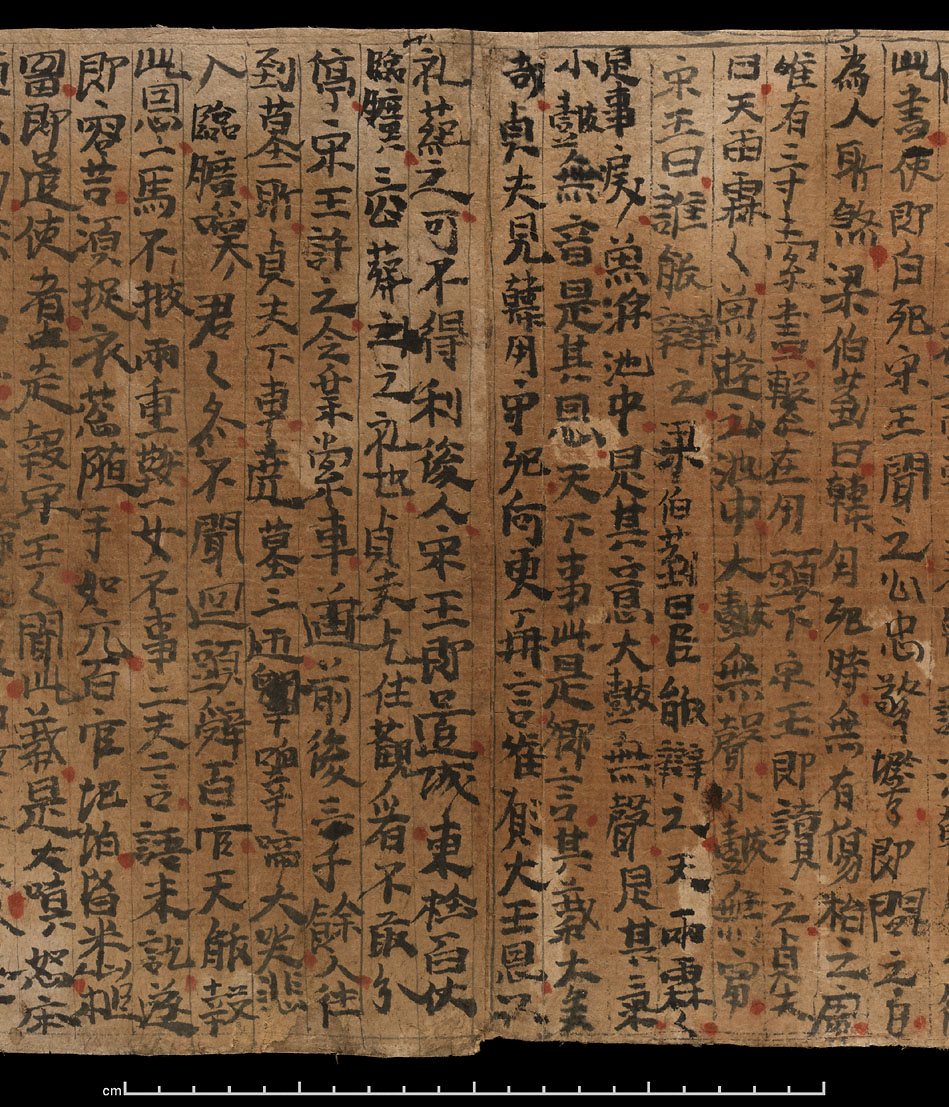 此書便即自死宋王聞之心忠驚愕即問之自
為人所煞梁伯芻曰韓用死時無有傷損之處
唯有三寸素書繫在用頭下宋王即讀之貞夫
曰天雨霖々魚遊池中大皷無聲小皷無音
宋王曰誰能辯之梁伯芻曰臣能辯之天雨霖々
是事淚魚游池中是其意大皷無聲是其氣
小皷無音是其思天下事此是鄉言其義大矣
哉貞夫見韓用身死何更再言唯願大王恩以
礼葬之可不得利後人宋王即遣城東栓百仗
臨曠三公葬之礼也貞夫乞往觀看不敢久
停宋王許之令乘素車前後三千餘人往
到墓所貞夫下車遶墓三迊嘷啼大哭悲
入臨曠喚君々亦不聞迴頭辞百官天能報
此恩一馬不被兩重鞍一女不事二夫言語未訖遂
即容苦須捉衣葱随手如亢百官忙怕皆
留即遣使者走報宋王々聞此義是大嗔怒床